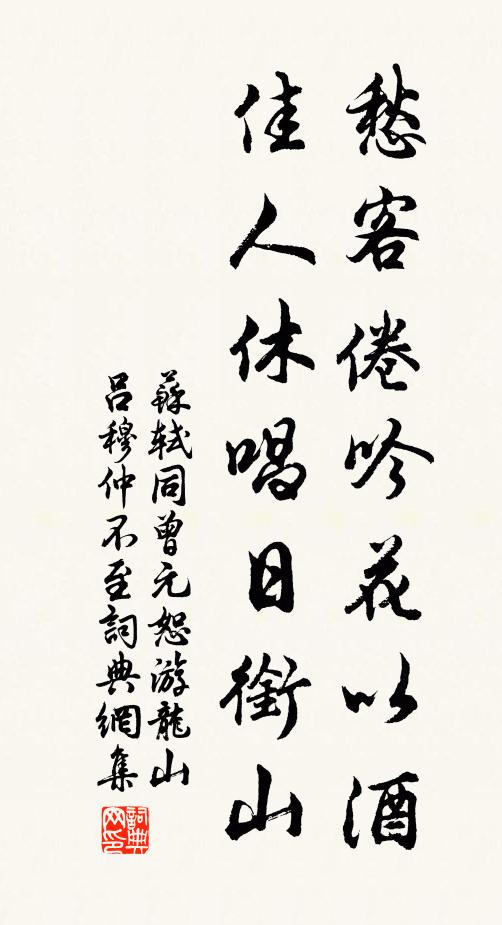 愁客倦吟花以酒
佳人休唱日銜山
蘇軾同曾元恕游龍山
呂穆仲不至詞典網集
詞典
网印